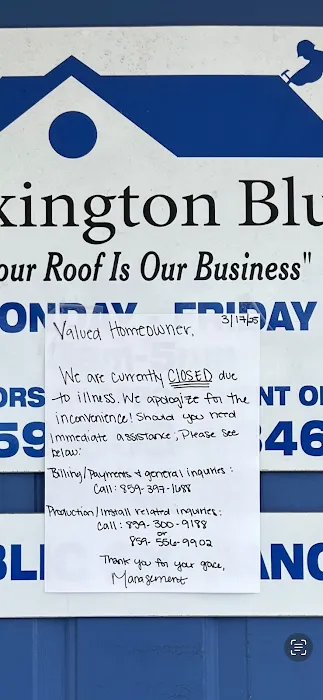 xington Blu
our Roof Is Our Business"
ONDAY FRIDAY
3/17/25
Valued Homeowner,
We are currently CLOSED due
to illness. We apologize for the
inconvenience! Should you need
immediate assistance, Please see
below:
ORS
NT O
59
346
Billing/Payments & general inquiries:
Call: 859-397-1688
Production/Install related inquiries:
Call: 859-300-9188
or
859-556-9902
Thank you for your grace,
Management
BL
ANC